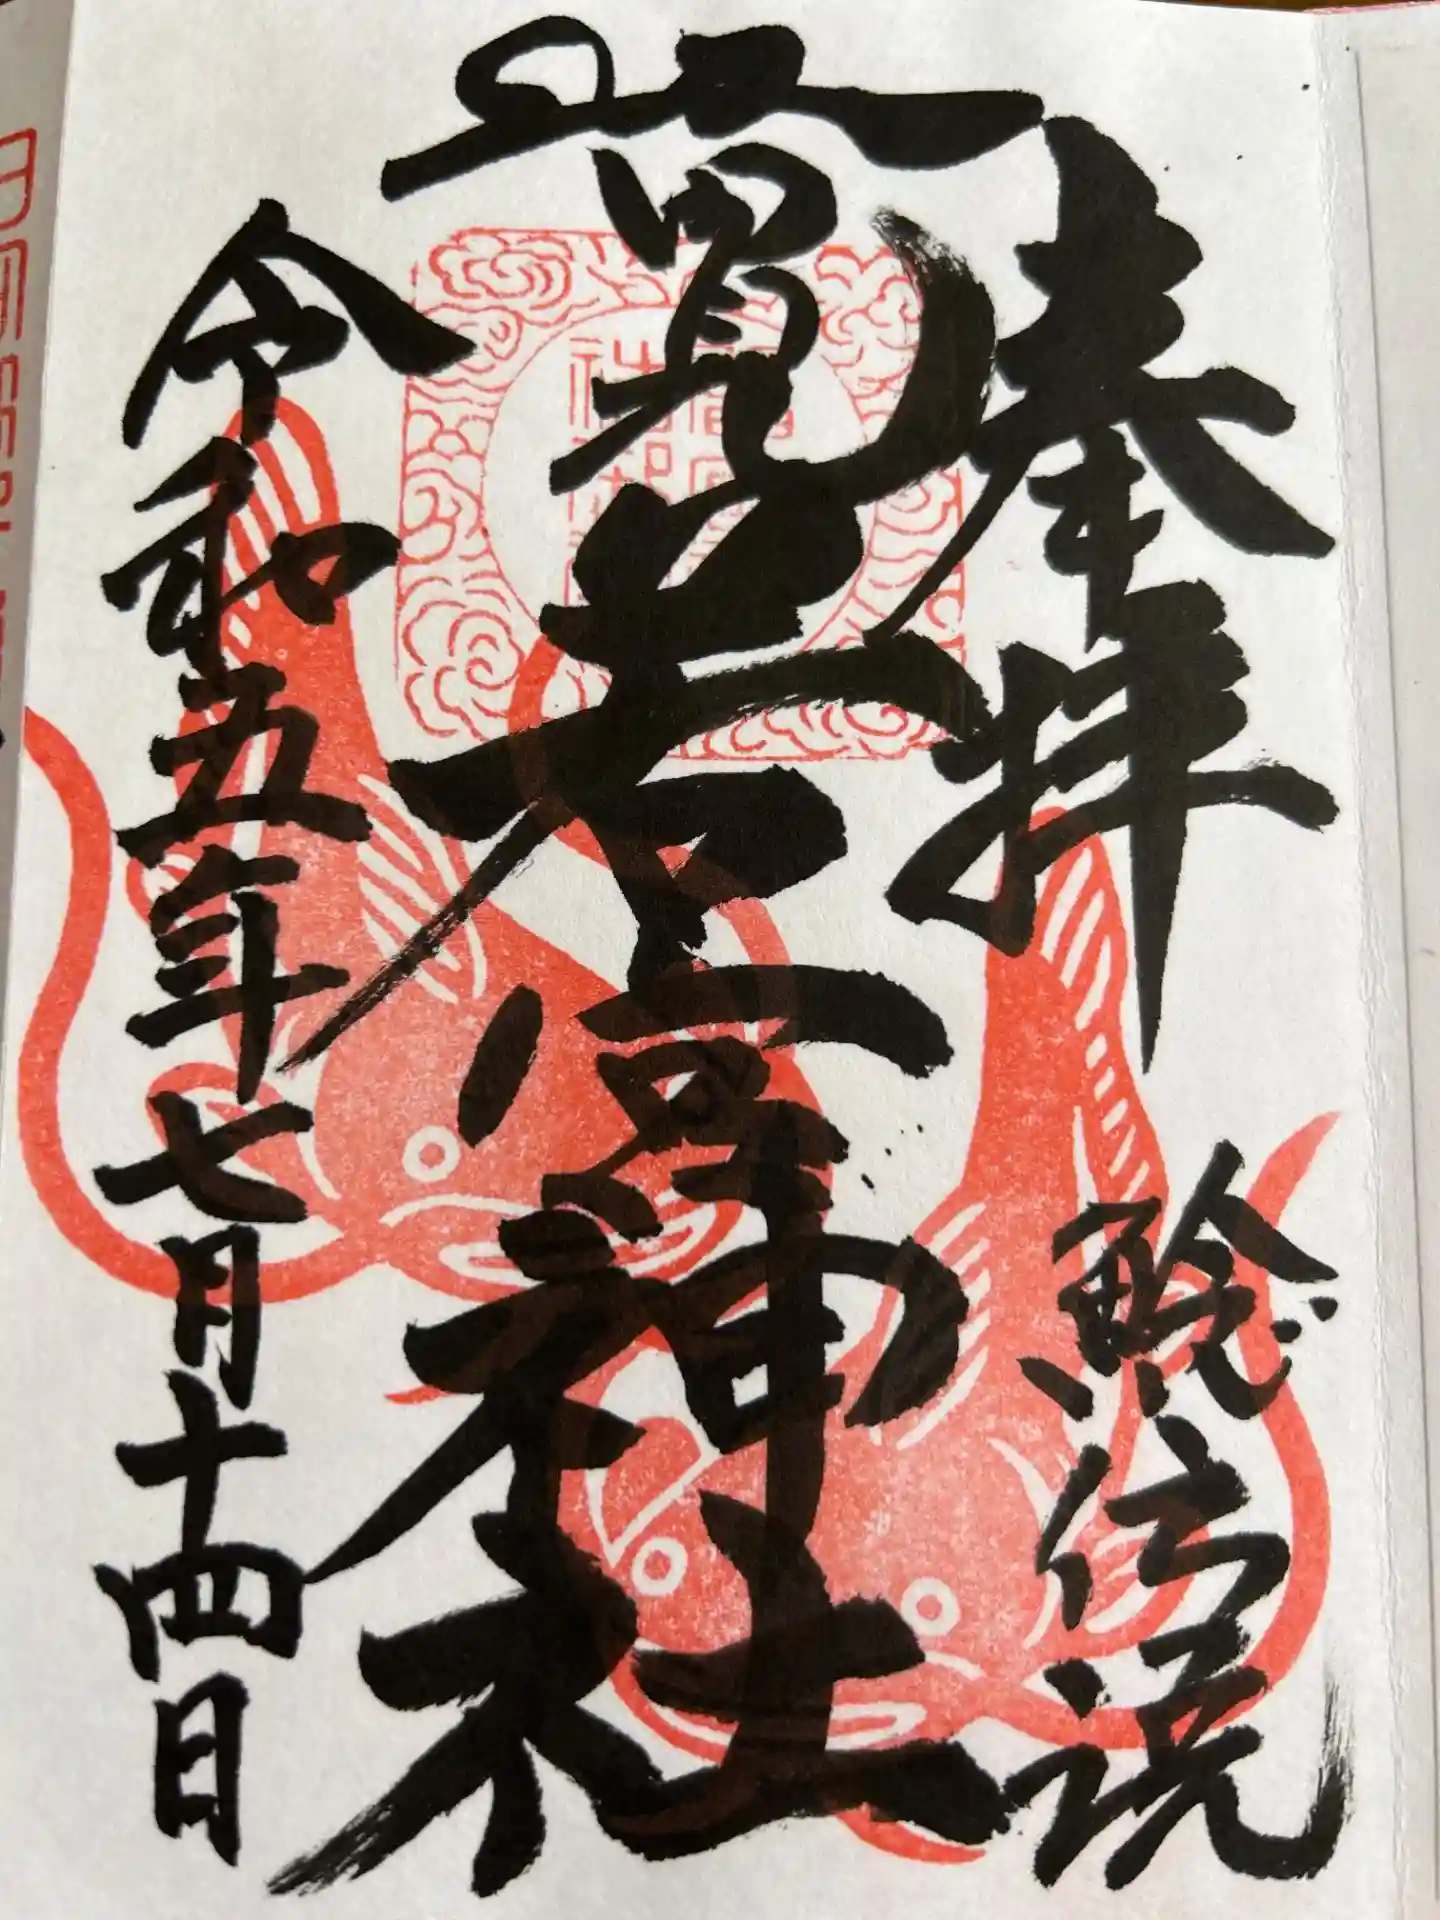 奉拝
鯰伝説
若宮神社
令和五年七月十四日